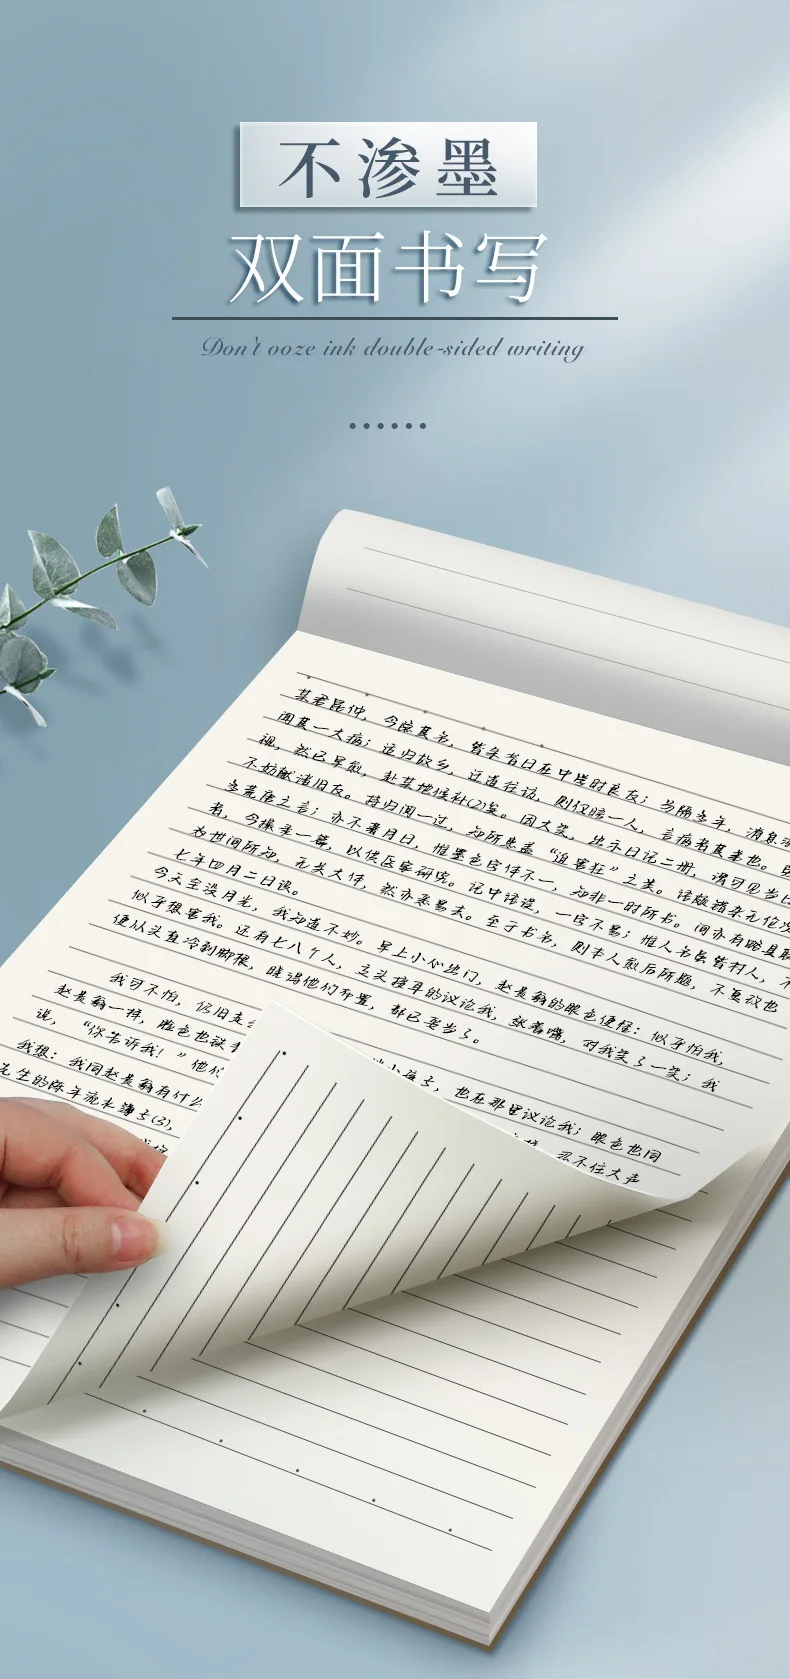 不渗墨
双面书写
Don't ooze ink double-sided writing
某君昆仲,今隐其名,皆余昔日在中学时良友;当隔多年,消息渐
闻其一大病;适归故乡,迂道往访,则仅晤一人,言病者其弟也。
视,然已早愈,赴某地候补(2)矣。因大笑,出示日记二册,谓可见当日
不妨献诸旧友。持归阅一过,知所患盖“迫害狂”之类。语颇错杂无伦次
多荒唐之言;亦不著月日,惟墨色字体不一,知非一时所书。间亦有略具联
者,今撮录一篇,以供医家研究。记中语误,一字不易;惟人名虽皆村人,不
为世间所知,无关大体,然亦悉易去。至于书名,则本人愈后所题,不复改也
七年四月二日识。
今天全没月光,我知道不妙。早上小心出门,赵贵翁的眼色便怪:似乎怕我,
似乎想害我。还有七八个人,交头接耳的议论我,张着嘴,对我笑了一笑;我
便从头直冷到脚根,晓得他们布置,都已妥当了。
我可不怕,仍旧走
小孩子,也在那里议论我;眼色也同
赵贵翁一样,脸色也铁青
忍不住大声
说,“你告诉我!”他们
我想:我同赵贵翁有什么
先生的陈年流水簿子(3),